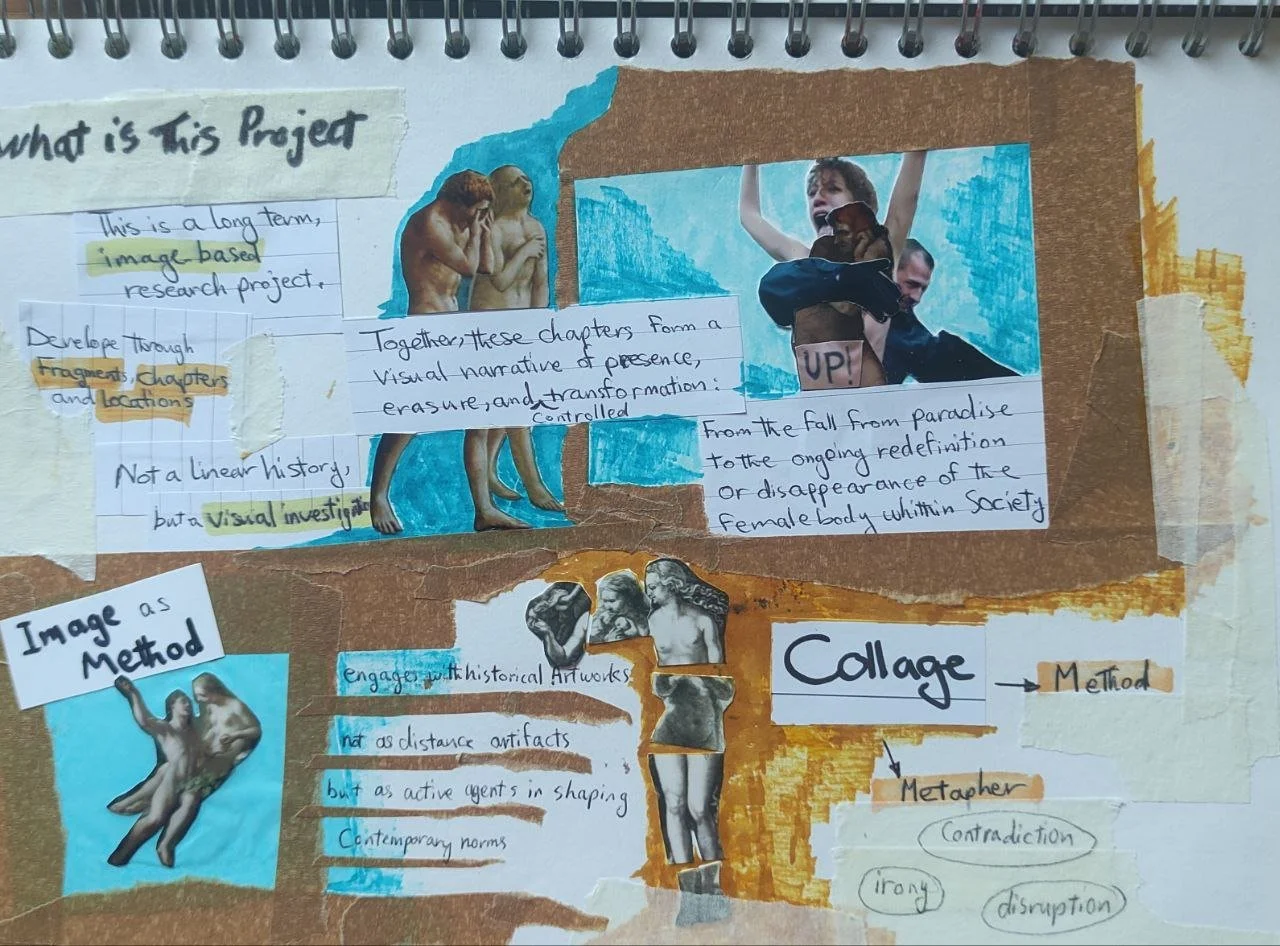 What is This Project
This is a long term,
image based
research project.
Develope through
Fragments, chapters
and locations
Not a linear history,
but a visual investigation
Together, these chapters form a
visual narrative of presence,
erasure, and controlled transformation:
From the fall from paradise
to the ongoing redefinition
or disappearance of the
female body whithin Society
UP!
Image as
Method
engages with historical Artworks
not as distance artifacts
but as active agents in shaping
Contemporary norms
Collage
Method
Metapher
Contradiction
irony
disruption